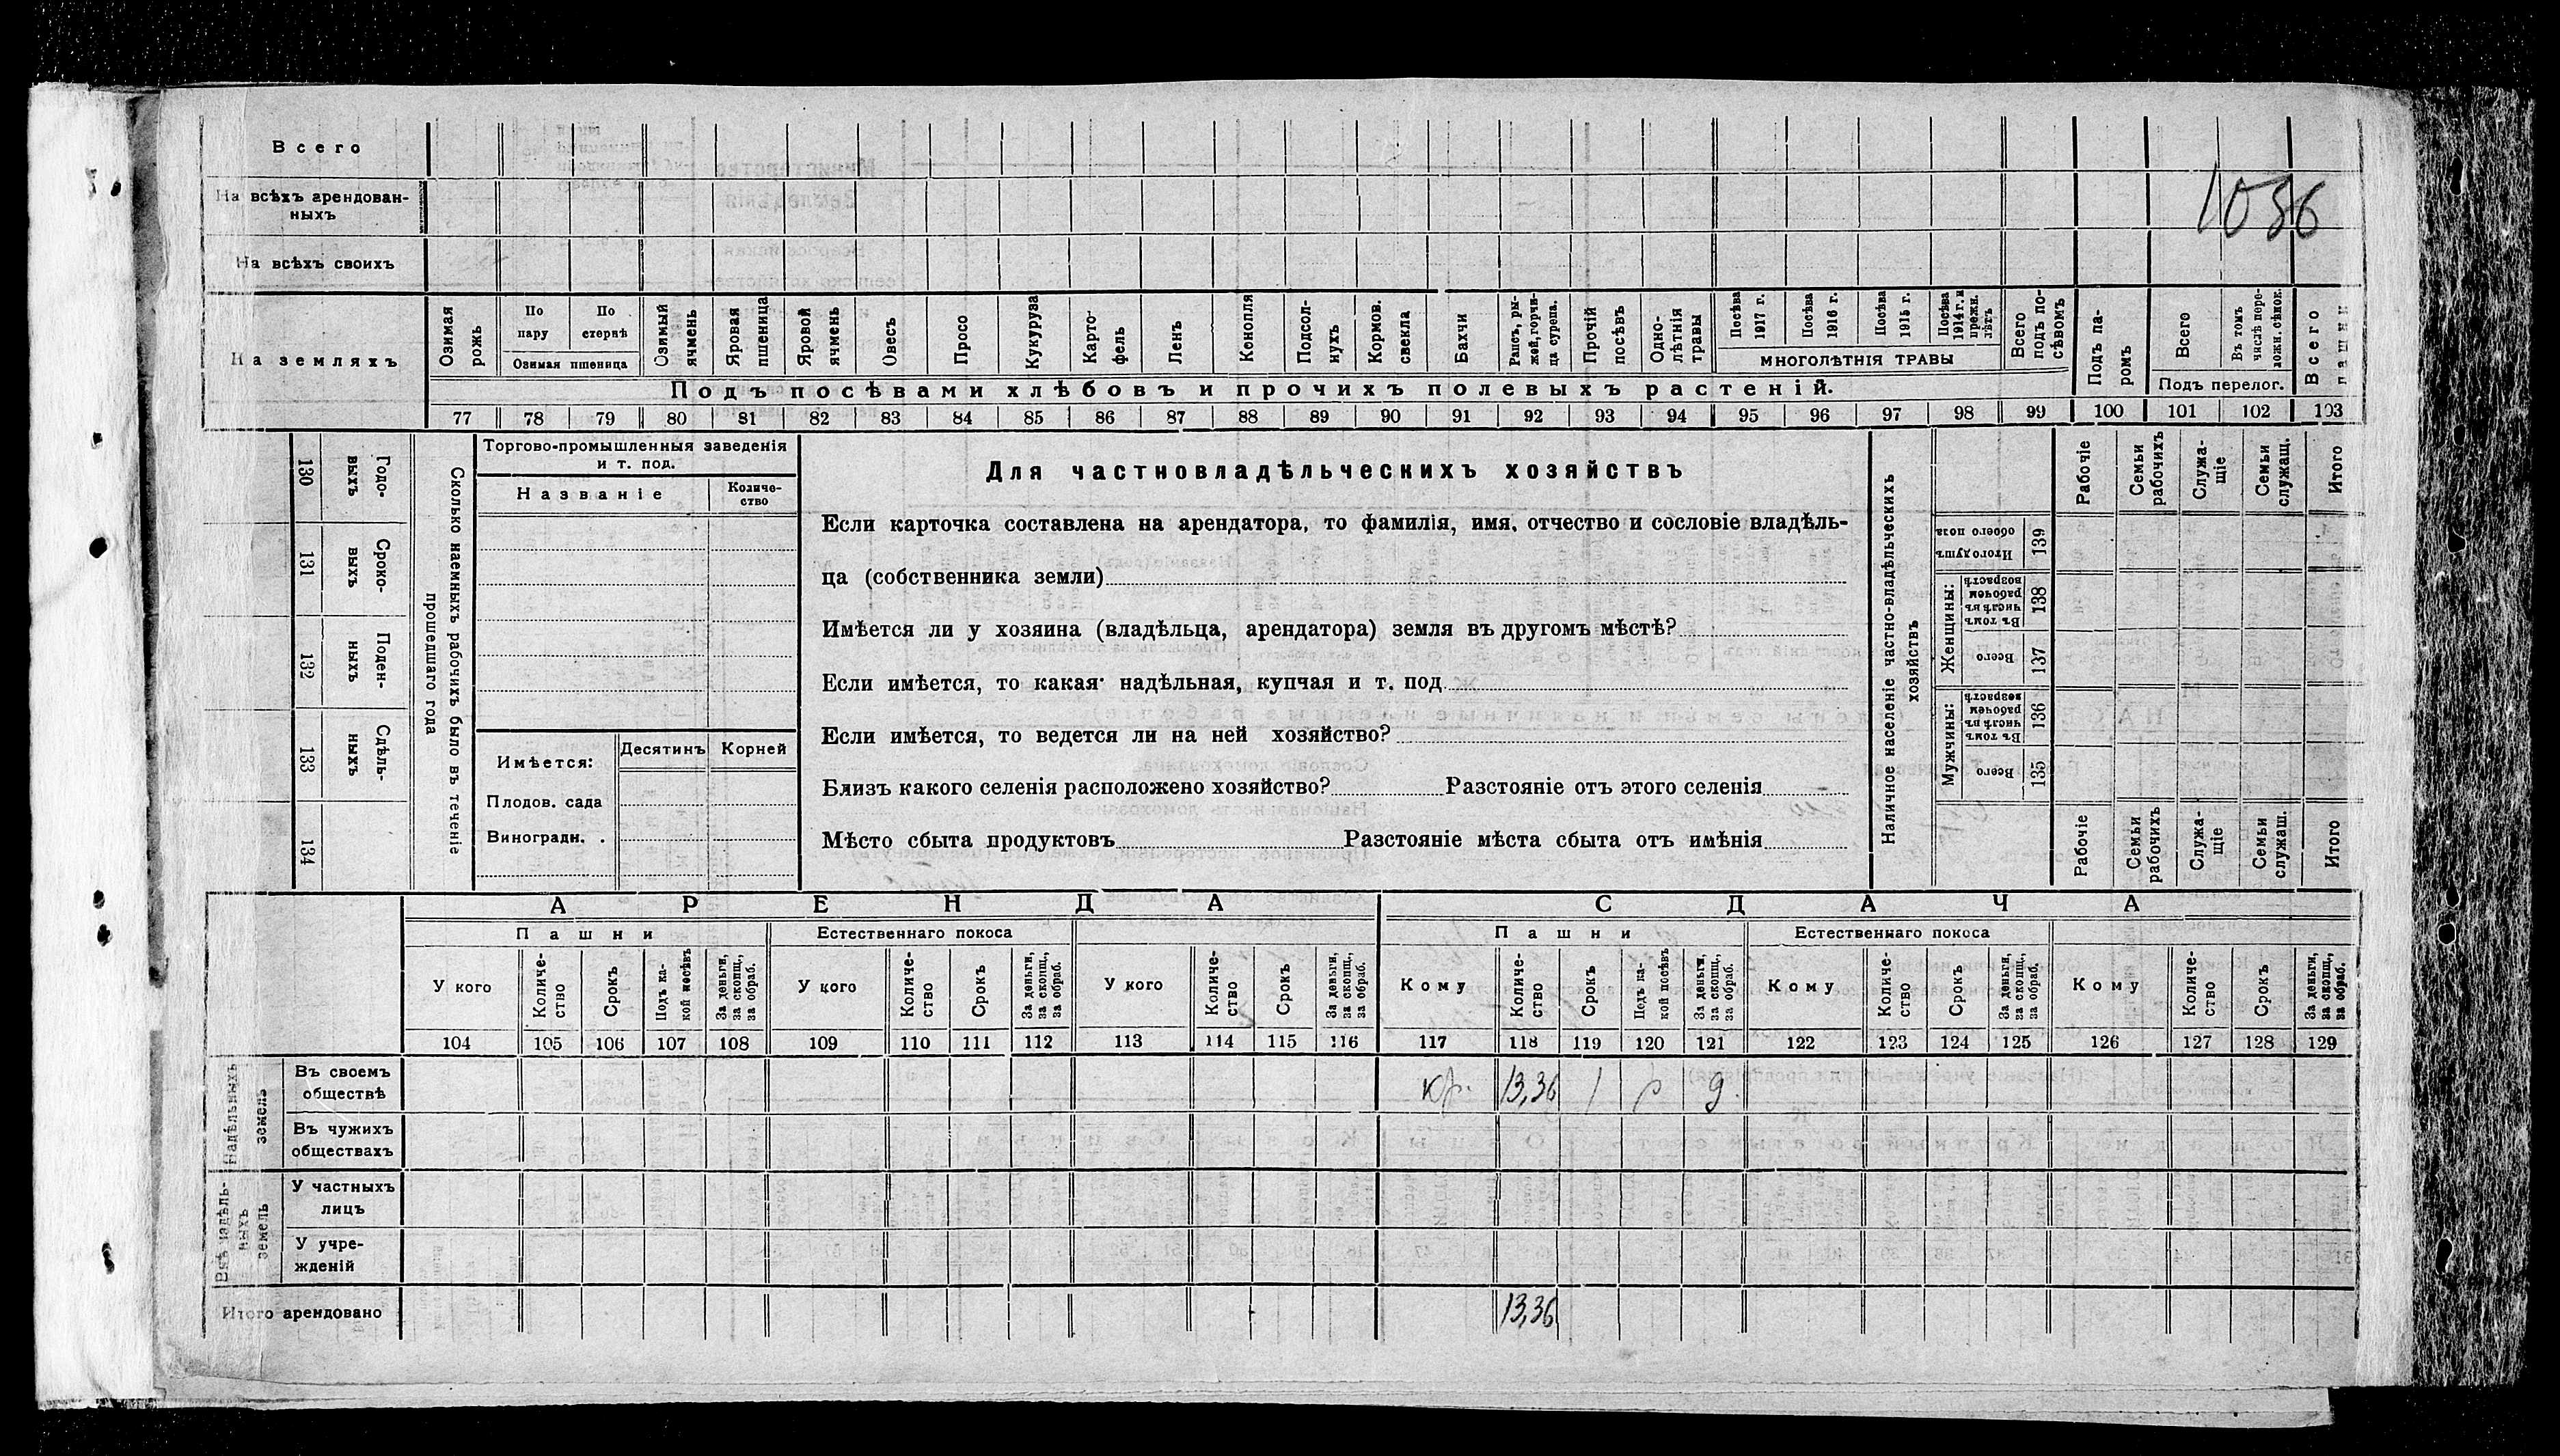 Всего
На всѣхъ арендован-
ныхъ
1086
На всѣхъ своихъ
На земляхъ
Озимая рожь
По пару
По стернѣ
Озимая пшеница
Озимый ячмень
Яровая пшеница
Яровой ячмень
Овесъ
Просо
Кукуруза
Карто-
фель
Ленъ
Конопля
Подсол-
нухъ
Кормов. свекла
Бахчи
Рапсъ, ры-
жей, горчи-
ца сурепа.
Прочій посѣвъ
Одно-
лѣтнія травы
Посѣва 1917 г.
Посѣва 1916 г.
Посѣва 1915 г.
Посѣва 1914 г. и прежн. лѣтъ
МНОГОЛѢТНІЯ ТРАВЫ
Всего подъ по-
сѣвомъ
Подъ па-
ромъ
Всего
Въ томъ числѣ пере-
ложн. сѣнок.
Подъ перелог.
Всего пашни
Подъ посѣвами хлѣбовъ и прочихъ полевыхъ растеній.
77 78 79 80 81 82 83 84 85 86 87 88 89 90 91 92 93 94 95 96 97 98 99 100 101 102 103
130 Годо-
выхъ
131 Сроко-
выхъ
132 Поден-
ныхъ
133 Сдѣль-
ныхъ
134
Сколько наемныхъ рабочихъ было въ теченіе
прошедшаго года
Торгово-промышленныя заведенія
и т. под.
Названіе
Количе-
ство
Имѣется:
Десятинъ
Корней
Плодов. сада
Виноградн. .
Для частновладѣльческихъ хозяйствъ
Если карточка составлена на арендатора, то фамилія, имя, отчество и сословіе владѣль-
ца (собственника земли)
Имѣется ли у хозяина (владѣльца, арендатора) земля въ другомъ мѣстѣ?
Если имѣется, то какая· надѣльная, купчая и т. под.
Если имѣется, то ведется ли на ней хозяйство?
Близъ какого селенія расположено хозяйство? Разстояніе отъ этого селенія
Мѣсто сбыта продуктовъ Разстояніе мѣста сбыта отъ имѣнія
Наличное населеніе частно-владѣльческихъ
хозяйствъ
Рабочіе
Семьи рабочихъ
Служа-
щіе
Семьи служащ.
Итого
Итого душъ обоего пола 139
Женщины:
Въ томъ числѣ въ рабочемъ возрастѣ 138
Всего 137
Мужчины:
Въ томъ числѣ въ рабочемъ возрастѣ 136
Всего 135
Рабочіе
Семьи рабочихъ
Служа-
щіе
Семьи служащ.
Итого
АРЕНДА
СДАЧА
Пашни
Естественнаго покоса
Пашни
Естественнаго покоса
У кого
Количе-
ство
Срокъ
Подъ ка-
кой посѣвъ
За деньги, за скопщ., за обраб.
У кого
Количе-
ство
Срокъ
За деньги, за скопщ., за обраб.
У кого
Количе-
ство
Срокъ
За деньги, за скопщ., за обраб.
Кому
Количе-
ство
Срокъ
Подъ ка-
кой посѣвъ
За деньги, за скопщ., за обраб.
Кому
Количе-
ство
Срокъ
За деньги, за скопщ., за обраб.
Кому
Количе-
ство
Срокъ
За деньги, за скопщ., за обраб.
104 105 106 107 108 109 110 111 112 113 114 115 116 117 118 119 120 121 122 123 124 125 126 127 128 129
Надѣльныхъ земель
Въ своемъ
обществѣ
кр. 13,36 1 р д.
Въ чужихъ
обществахъ
Внѣ надѣль-
ныхъ земель
У частныхъ
лицъ
У учре-
жденій
Итого арендовано
13,36